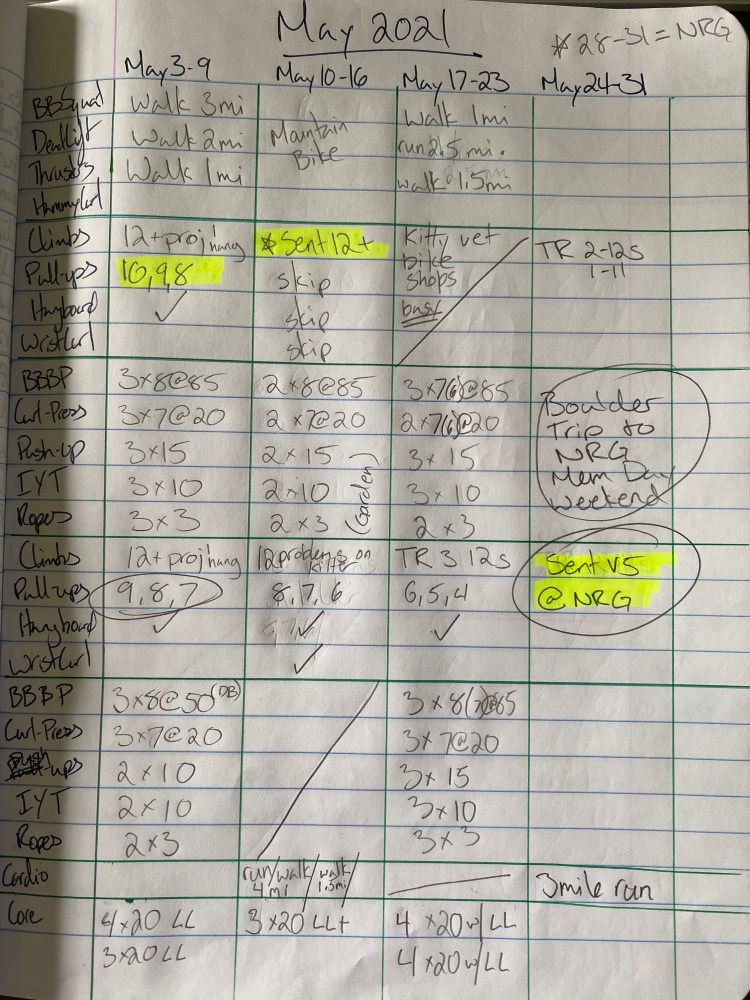 May 2021
* 28-31 = NRG
May 3-9 May 10-16 May 17-23 May 24-31
BBSquat Walk 3mi Walk 1mi
Deadlift Walk 2mi Mountain run 2.5 mi.
Thrusts Walk 1mi Bike walk 1.5mi
HammyCurl
Climbs 12+ proj hang *Sent 12+ Kitty vet TR 2-12s
Pull-ups 10,9,8 skip bike shops 1-11
Hangboard ✓ skip busy
WristCurl skip
BBBP 3x8@85 2x8@85 3x7(6)@85 Boulder
Curl-Press 3x7@20 2x7@20 2x7(6)@20 Trip to
Push-up 3x15 2x15 3x15 NRG
IYT 3x10 2x10 (Garden) 3x10 Mem Day
Ropes 3x3 2x3 2x3 Weekend
Climbs 12+ proj hang 12 problems on kilter TR 3 12s Sent V5
Pull-ups 9,8,7 8,7,6 6,5,4 @ NRG
Hangboard ✓ ✓ ✓
WristCurl ✓
BBBP 3x8@50 (DB) 3x8(7)@85
Curl-Press 3x7@20 3x7@20
Push-ups 2x10 3x15
IYT 2x10 3x10
Ropes 2x3 3x3
Cardio run/walk 4mi / walk 1.5mi / 3mile run
Core 4x20 LL 3x20 LL+ 4x20 w/ LL
3x20 LL 4x20 w/ LL